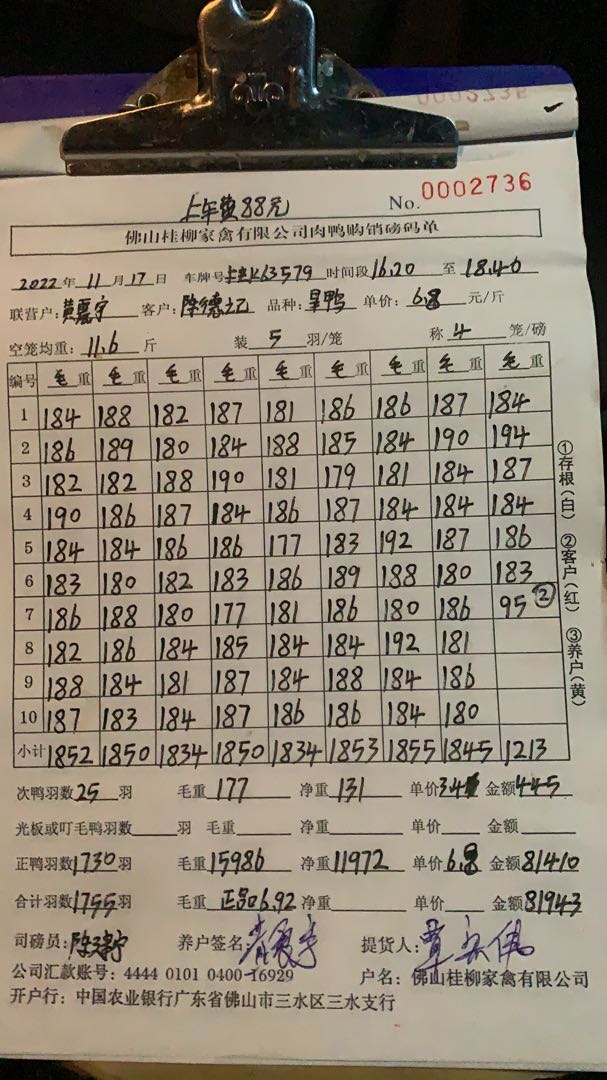 0002736
上车费88元 No. 0002736
佛山桂柳家禽有限公司肉鸭购销磅码单
2022年11月17日 车牌号 63579 时间段16.20至18.40
联营户:黄宇 客户:陈德 品种:鸭 单价:6.8元/斤
空笼均重:11.6斤 装5羽/笼 称4笼/磅
编号 毛重 毛重 毛重 毛重 毛重 毛重 毛重 毛重 毛重
1 184 188 182 187 181 186 186 187 184
2 186 189 180 184 188 185 184 190 194
3 182 182 188 190 181 179 181 184 187
4 190 186 187 184 186 187 184 184 184
5 184 184 186 186 177 183 192 187 186
6 183 180 182 183 186 189 188 180 183
7 186 188 180 177 181 186 180 186 95②
8 182 186 184 185 184 184 192 181
9 188 184 181 187 184 188 184 186
10 187 183 184 187 186 186 184 180
小计 1852 1850 1834 1850 1834 1853 1855 1845 1213
①存根(白) ②客户(红) ③养户(黄)
次鸭羽数25羽 毛重177 净重131 单价3.4 金额445
光板或叮毛鸭羽数 羽 毛重 净重 单价 金额
正鸭羽数1730羽 毛重15986 净重11972 单价6.8 金额81410
合计羽数1755羽 毛重 正品6.92 净重 单价 金额81943
司磅员: 养户签名: 提货人:
公司汇款账号:4444 0101 0400 16929 户名:佛山桂柳家禽有限公司
开户行:中国农业银行广东省佛山市三水区三水支行